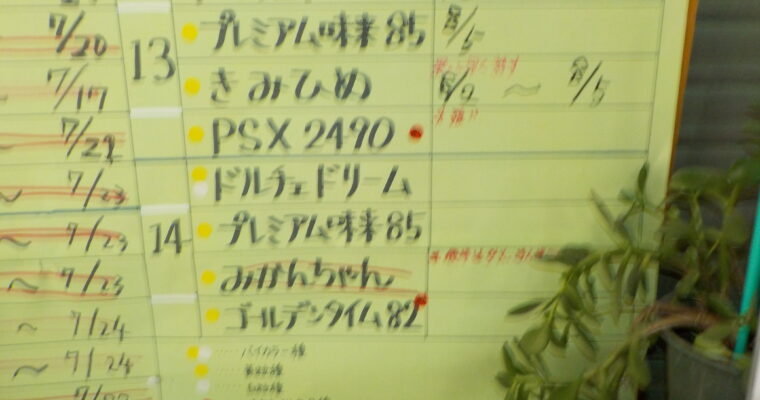 7/20 13 プレミアム味来85 8/5
7/17 きみひめ 8/2 ~ 8/5
7/21 PSX 2490
~ 7/23 ドルチェドリーム
~ 7/23 14 プレミアム味来85
~ 7/23 みかんちゃん
~ 7/24 ゴールデンタイム82
~ 7/24 バイカラー種